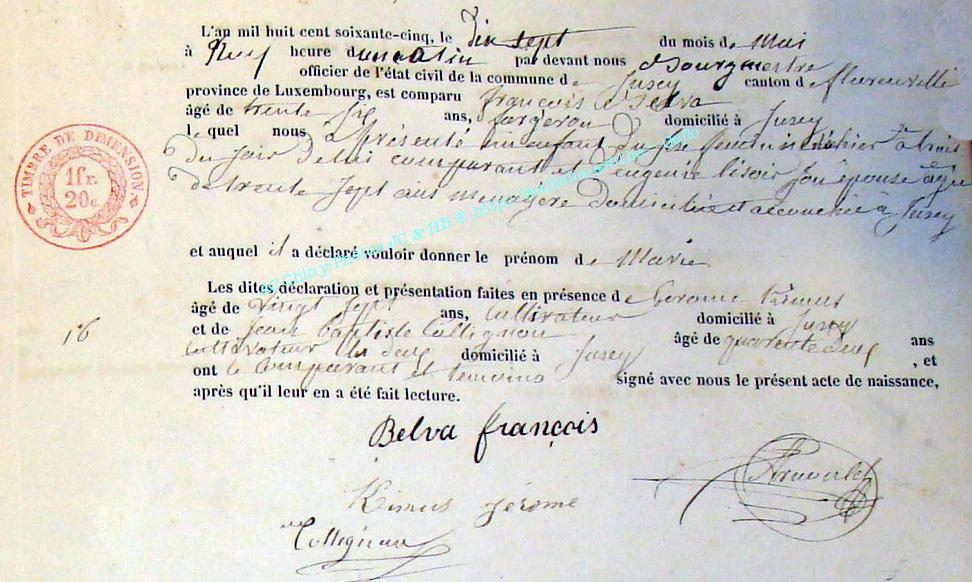 L'an mil huit cent soixante-cinq, le Dix sept du mois de Mai
à heure du matin par devant nous Bourgmestre
officier de l'état civil de la commune de Jusey canton de florenville
province de Luxembourg, est comparu françois Belva
âgé de trente six ans, domicilié à Jusey
lequel nous a présenté un enfant du sexe feminin né hier à trois
du soir de lui comparant et eugenie son épouse agée
de trente sept ans menagere domiciliée et accouchée a Jusey
TIMBRE DE DIMENSION
1 fr.
20 c.
et auquel il a déclaré vouloir donner le prénom de Marie
Les dites déclaration et présentation faites en présence de Gerome Kimus
âgé de vingt sept ans, Cultivateur domicilié à Jusey
16
et de Jean Baptiste Collignon âgé de quarente deux ans
Cultivateur domicilié à Jusey , et
ont le comparant et temoins signé avec nous le présent acte de naissance,
après qu'il leur en a été fait lecture.
Belva françois
Kimus Jérome
Collignon